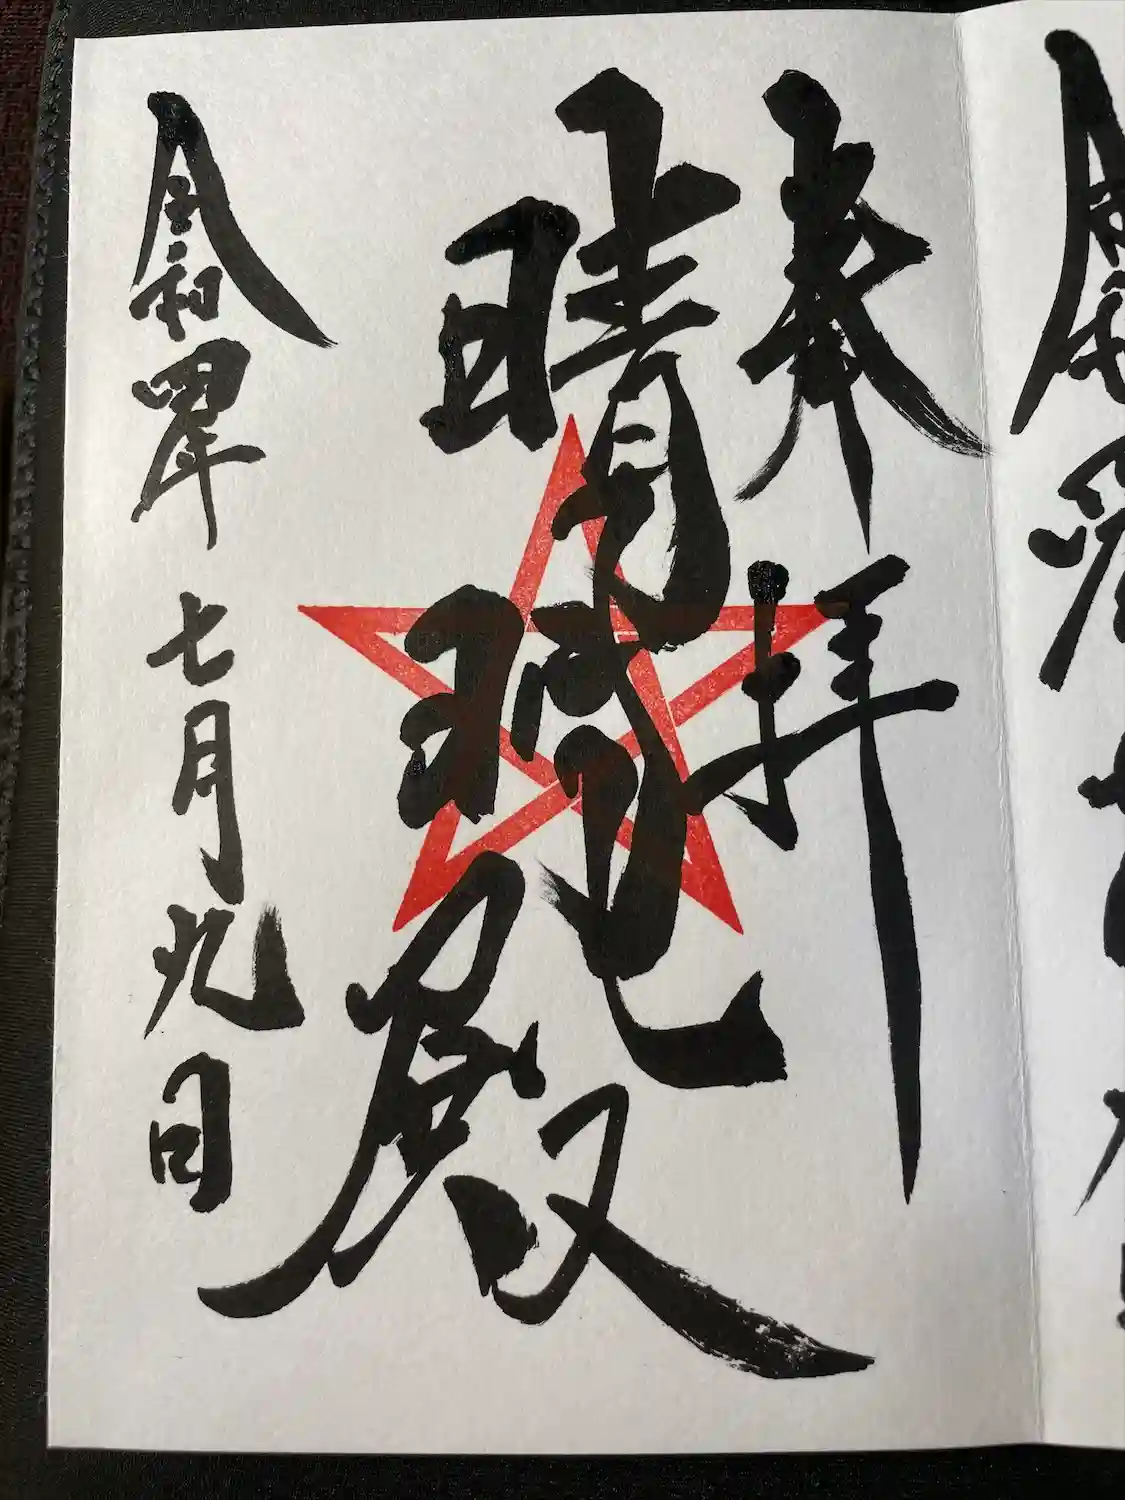 奉拝
晴明殿
令和四年七月九日